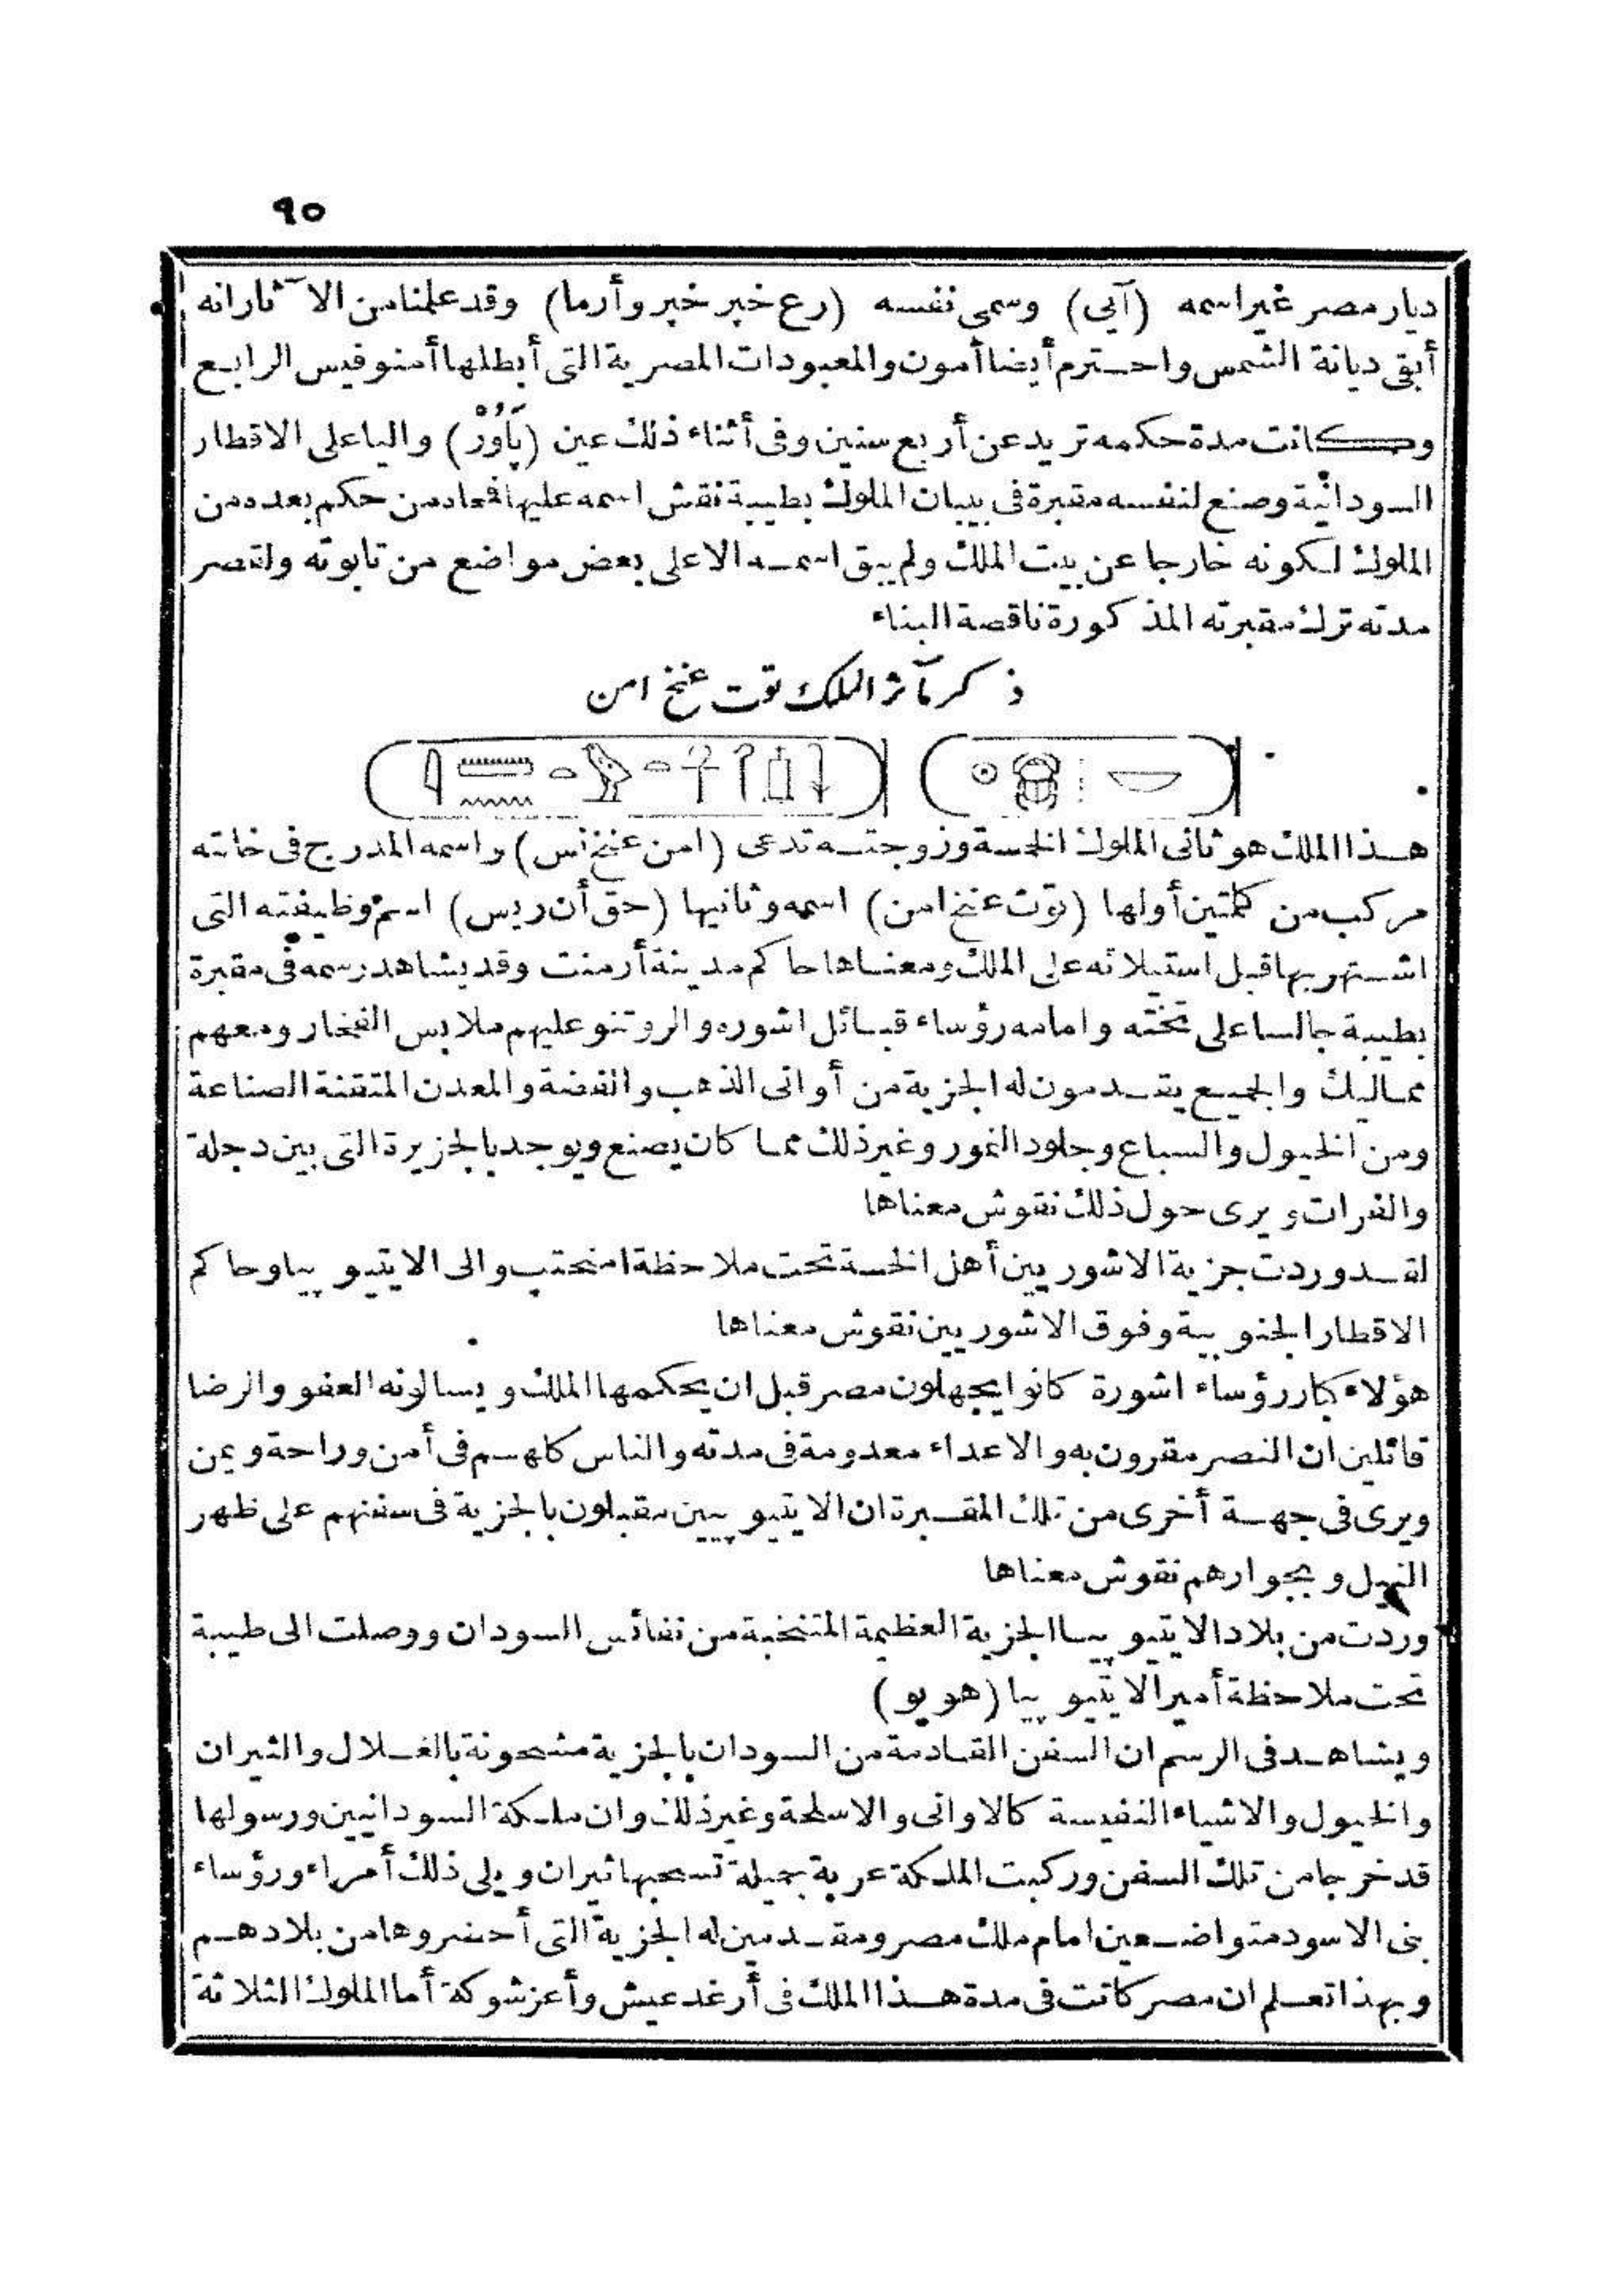 ٩٥
ديار مصر غير اسمه (آيى) وسمى نفسه (رع خبر خبر وأرما) وقد علمنا من الآثار انه
أبقى ديانة الشمس واحترم أيضا أمون والمعبودات المصرية التى أبطلها أمنوفيس الرابع
وكانت مدة حكمه تزيد عن أربع سنين وفى أثناء ذلك عين (پَاوُرْ) واليا على الاقطار
السودانية وصنع لنفسه مقبرة فى بيبان الملوك بطيبة نقش اسمه عليها فمحاه من حكم بعده من
الملوك لكونه خارجا عن بيت الملك ولم يبق اسمه الا على بعض مواضع من تابوته ولقصر
مدته ترك مقبرته المذكورة ناقصة البناء
ذكر مآثر الملك توت عنخ امن
هذا الملك هو ثانى الملوك الخمسة وزوجته تدعى (امن عنخ نس) واسمه المدرج فى خانته
مركب من كلمتين أولها (توت عنخ امن) اسمه وثانيها (حق أن ريس) اسم وظيفته التى
اشتهر بها قبل استيلائه على الملك ومعناها حاكم مدينة أرمنت وقد يشاهد رسمه فى مقبرة
بطيبة جالسا على تخته وامامه رؤساء قبائل اشوره والروتنو عليهم ملابس الفخار ومعهم
مماليك والجميع يقدمون له الجزية من أوانى الذهب والفضة والمعدن المتقنة الصناعة
ومن الخيول والسباع وجلود النمور وغير ذلك مما كان يصنع ويوجد بالجزيرة التى بين دجلة
والفرات ويرى حول ذلك نقوش معناها
لقد وردت جزية الاشوريين أهل الخسة تحت ملاحظة امنحتب والى الايتيوپيا وحاكم
الاقطار الجنوبية وفوق الاشوريين نقوش معناها
هؤلاء كبار رؤساء اشورة كانوا يجهلون مصر قبل ان يحكمها الملك ويسالونه العفو والرضا
قائلين ان النصر مقرون به والاعداء معدومة فى مدته والناس كلهم فى أمن وراحة ويمن
ويرى فى جهة أخرى من تلك المقبرة ان الايتيوپيين مقبلون بالجزية فى سفنهم على ظهر
النيل وبجوارهم نقوش معناها
وردت من بلاد الايتيوپيا الجزية العظيمة المنتخبة من نفائس السودان ووصلت الى طيبة
تحت ملاحظة أمير الايتيوپيا (هويو)
ويشاهد فى الرسم ان السفن القادمة من السودان بالجزية مشحونة بالغلال والثيران
والخيول والاشياء النفيسة كالاوانى والاسلحة وغير ذلك وان ملكة السودانيين ورسولها
قد خرجا من تلك السفن وركبت الملكة عربة جميلة تسحبها ثيران ويلى ذلك أمراء ورؤساء
بنى الاسود متواضعين امام ملك مصر ومقدمين له الجزية التى أحضروها من بلادهم
وبهذا تعلم ان مصر كانت فى مدة هذا الملك فى أرغد عيش وأعز شوكة أما الملوك الثلاثة